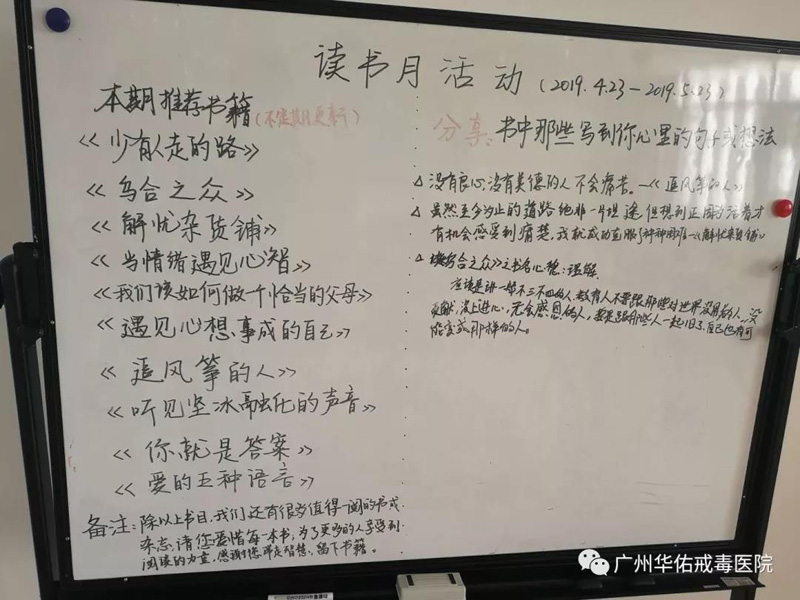 读书月活动（2019.4.23-2019.5.23）
本期推荐书籍（不定期更新）
《少有人走的路》
《乌合之众》
《解忧杂货铺》
《当情绪遇见心智》
《我们该如何做个恰当的父母》
《遇见心想事成的自己》
《追风筝的人》
《听见坚冰融化的声音》
《你就是答案》
《爱的五种语言》
备注：除以上书目，我们还有很多值得一阅的书或
杂志，请您爱惜每一本书，为了更多的人享受到
阅读的力量，感谢您带走智慧，留下书籍。
分享：书中那些写到你心里的句子或想法
△ 没有良心、没有美德的人不会痛苦。—《追风筝的人》
△ 虽然至今为止的道路绝非一片坦途，但想到正因为活着才
有机会感受到痛楚，我就成功克服了种种困难—《解忧杂货铺》
合之众》之书名心 ：理解
应该是讲一帮不三不四的人，教育人不要跟那些对世界没用的人、没
贡献，没上进心，无会感恩的人，要是跟那些人一起 ，自己也有可
能变成那样的人。
广州华佑戒毒医院